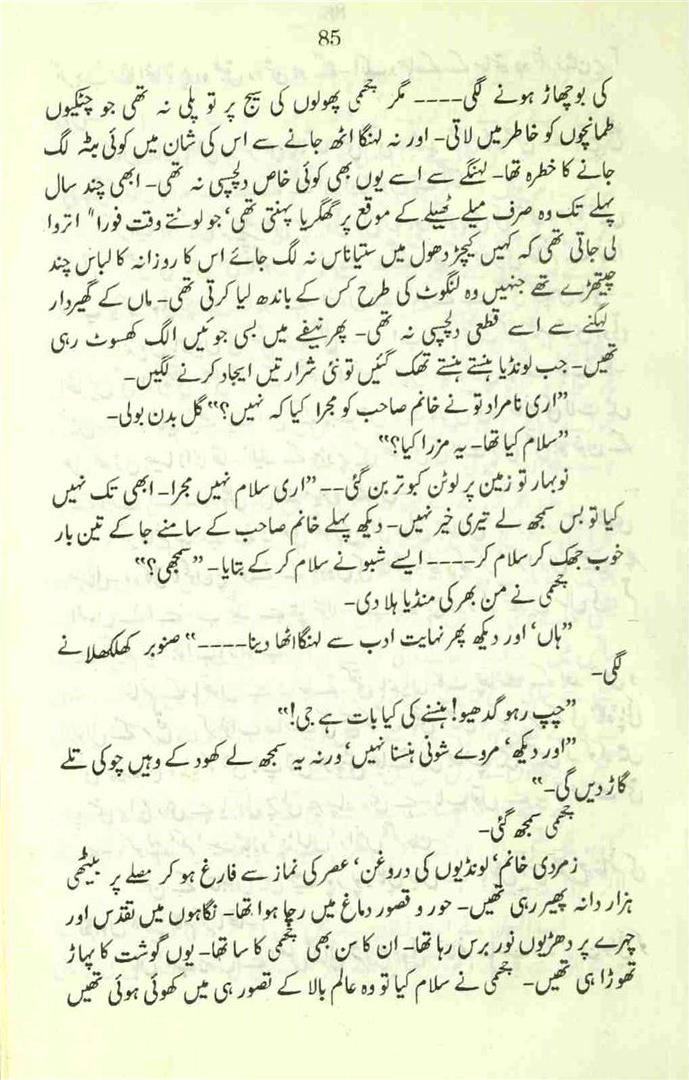 85
کی بوچھاڑ ہونے لگی۔۔۔۔ مگر چھمی پھولوں کی سیج پر تو پلی نہ تھی جو چٹکیوں
طمانچوں کو خاطر میں لاتی۔ اور نہ لہنگا اٹھ جانے سے اس کی شان میں کوئی بٹہ لگ
جانے کا خطرہ تھا۔ لہنگے سے اسے یوں بھی کوئی خاص دلچسپی نہ تھی۔ ابھی چند سال
پہلے تک وہ صرف میلے ٹھیلے کے موقع پر گھگریا پہنتی تھی‘ جو لوٹتے وقت فورا" اتروا
لی جاتی تھی کہ کہیں کیچڑ دھول میں ستیاناس نہ لگ جائے اس کا روزانہ کا لباس چند
چیتھڑے تھے جنہیں وہ لنگوٹ کی طرح کس کے باندھ لیا کرتی تھی۔ ماں کے گھیردار
لہنگے سے اسے قطعی دلچسپی نہ تھی۔ پھر نیفے میں بسی جوئیں الگ کھسوٹ رہی
تھیں۔ جب لونڈیا ہنستے ہنستے تھک گئیں تو نئی شرارتیں ایجاد کرنے لگیں۔
”اری نامراد تو نے خانم صاحب کو مجرا کیا کہ نہیں؟“ گل بدن بولی۔
”سلام کیا تھا۔ یہ مزرا کیا؟“
نوبہار تو زمین پر لوٹن کبوتر بن گئی۔۔ ”اری سلام نہیں مجرا۔ ابھی تک نہیں
کیا تو بس سمجھ لے تیری خیر نہیں۔ دیکھ پہلے خانم صاحب کے سامنے جا کے تین بار
خوب جھک کر سلام کر۔۔۔۔ ایسے شبو نے سلام کر کے بتایا۔ ”سمجھی؟“
چھمی نے من بھر کی منڈیا ہلا دی۔
”ہاں‘ اور دیکھ پھر نہایت ادب سے لہنگا اٹھا دینا۔۔۔۔“ صنوبر کھلکھلانے
لگی۔
”چپ رہو گدھیو! ہنسنے کی کیا بات ہے جی!“
”اور دیکھ‘ مروے شونی ہنسنا نہیں‘ ورنہ یہ سمجھ لے کھود کے وہیں چوکی تلے
گاڑ دیں گی۔“
چھمی سمجھ گئی۔
زمردی خانم‘ لونڈیوں کی دروغن‘ عصر کی نماز سے فارغ ہو کر مصلے پر بیٹھی
ہزار دانہ پھیر رہی تھیں۔ حور و قصور دماغ میں رچا ہوا تھا۔ نگاہوں میں تقدس اور
چہرے پر دھڑیوں نور برس رہا تھا۔ ان کا سن بھی چھمی کا سا تھا۔ یوں گوشت کا پہاڑ
تھوڑا ہی تھیں۔ چھمی نے سلام کیا تو وہ عالم بالا کے تصور ہی میں کھوئی ہوئی تھیں